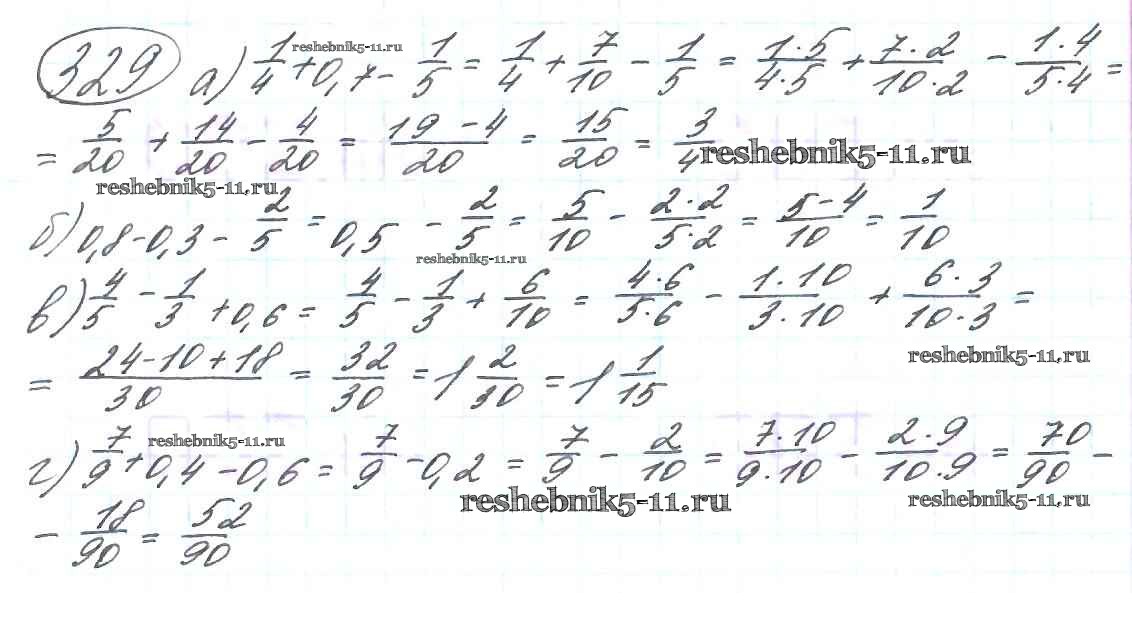 329 а) 1/4 + 0,7 - 1/5 = 1/4 + 7/10 - 1/5 = 1·5/4·5 + 7·2/10·2 - 1·4/5·4 =
reshebnik5-11.ru
= 5/20 + 14/20 - 4/20 = 19-4/20 = 15/20 = 3/4
reshebnik5-11.ru
reshebnik5-11.ru
б) 0,8-0,3 - 2/5 = 0,5 - 2/5 = 5/10 - 2·2/5·2 = 5-4/10 = 1/10
reshebnik5-11.ru
в) 4/5 - 1/3 + 0,6 = 4/5 - 1/3 + 6/10 = 4·6/5·6 - 1·10/3·10 + 6·3/10·3 =
reshebnik5-11.ru
= 24-10+18/30 = 32/30 = 1 2/30 = 1 1/15
г) 7/9 + 0,4 - 0,6 = 7/9 - 0,2 = 7/9 - 2/10 = 7·10/9·10 - 2·9/10·9 = 70/90 -
reshebnik5-11.ru
reshebnik5-11.ru
reshebnik5-11.ru
- 18/90 = 52/90